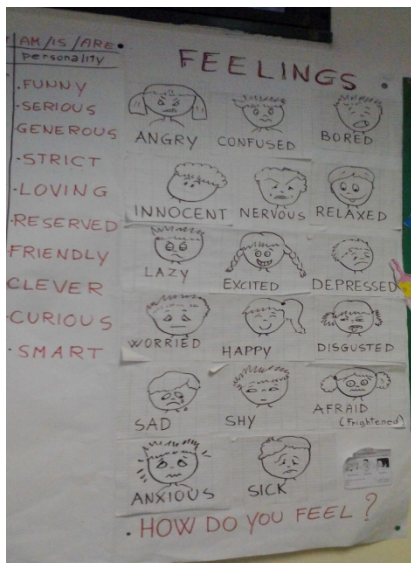 AM/IS/ARE
personality
·FUNNY
·SERIOUS
GENEROUS
·STRICT
·LOVING
·RESERVED
FRIENDLY
CLEVER
·CURIOUS
·SMART
FEELINGS
ANGRY CONFUSED BORED
INNOCENT NERVOUS RELAXED
LAZY EXCITED DEPRESSED
WORRIED HAPPY DISGUSTED
SAD SHY AFRAID
(frightened)
ANXIOUS SICK
·HOW DO YOU FEEL?